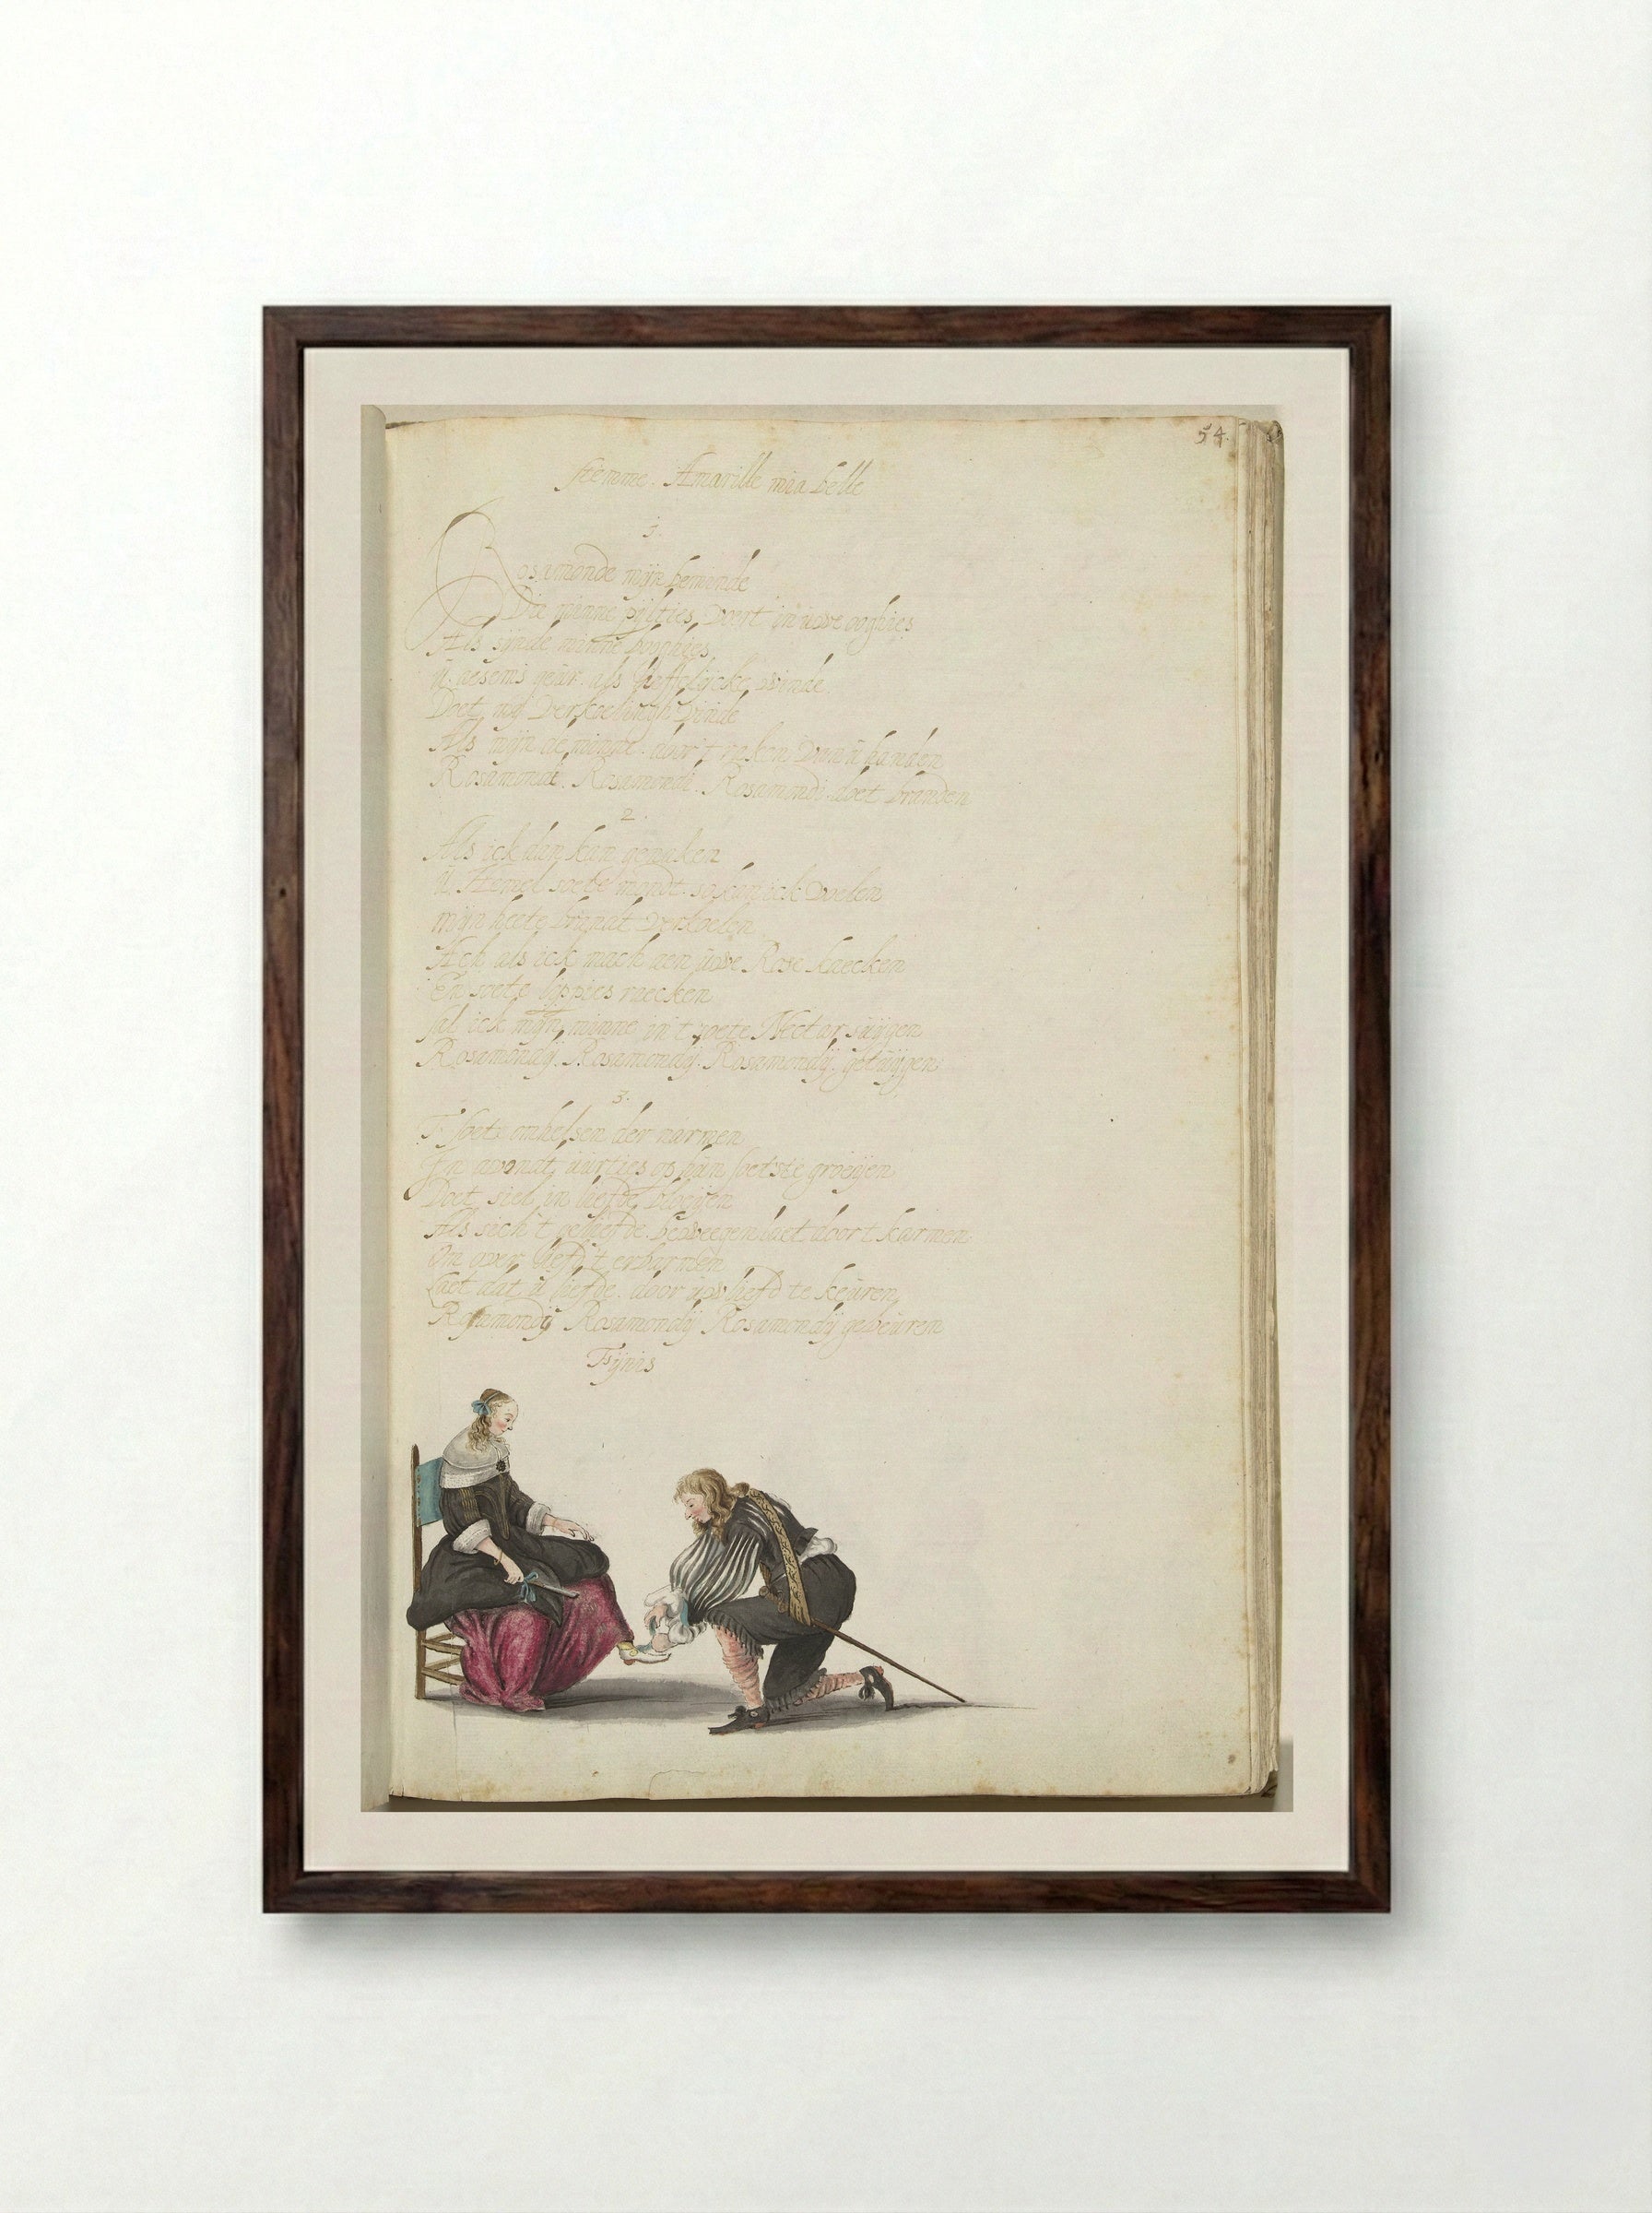 54.
stemme. Amarille mia belle
1.
Rosamonde mijn beminde
Die minne pijlties voert in uwe ooghies
Als sijnde minne booghies
U aesems geur als lieffelijcke winde
Doet mij verkoelingh vinde
Als mijn de minne door't raken van u handen
Rosamondi. Rosamondi. Rosamondi doet branden
2.
Als ick dan kan genaken
U Hemel soete mondt. so kan ick voelen
mijn heete brandt verkoelen
Ach als ick mach aen uwe Rose kaecken
En soete lippies raecken
sal ick mijn minne in't soete Nectar suijgen
Rosamondij. Rosamondij. Rosamondij. getuijgen
3.
T'soete omhelsen der narmen
In avondt uurties op hun soetste groeijen
Doet siel in liefde bloeijen
Als sich't geliefde beweegen laet door't karmen
Om over lieft t'erbarmen
Laet dat u liefde. door uw lieft te keuren
Rosamondij Rosamondij Rosamondij gebeuren
Fijnis